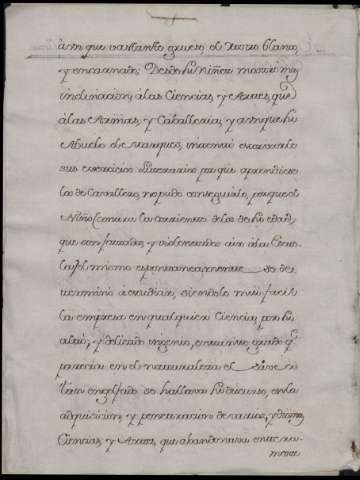 aunque bastante grueso el rostro blanco,
y encarnado; Desde su niñez mostró mas
inclinacion, á las Ciencias, y Artes, que
á las Armas, y Caballeria; y aunque su
Abuelo el Marques, intentó
sus exercicios por que aprendiese
los de Cavallero, no pudo conseguirlo, porque el
Niño (contra la corriente de los de su edad,
que son forzados, y violentados van á la Escu-
la) el mismo espontaneamente se de-
terminó á estudiar, siendole mui facil
la empresa en qualquier Ciencia, por su
y delicado ingenio, en sumo grado q.
parecia en el naturaleza el
tan engolfado se hallava su discurso, en la
adquisicion, y penetracion de varias, y
Ciencias, y Artes, que abandonava entera-
mente